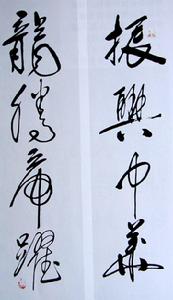 振興中華
龍騰虎躍